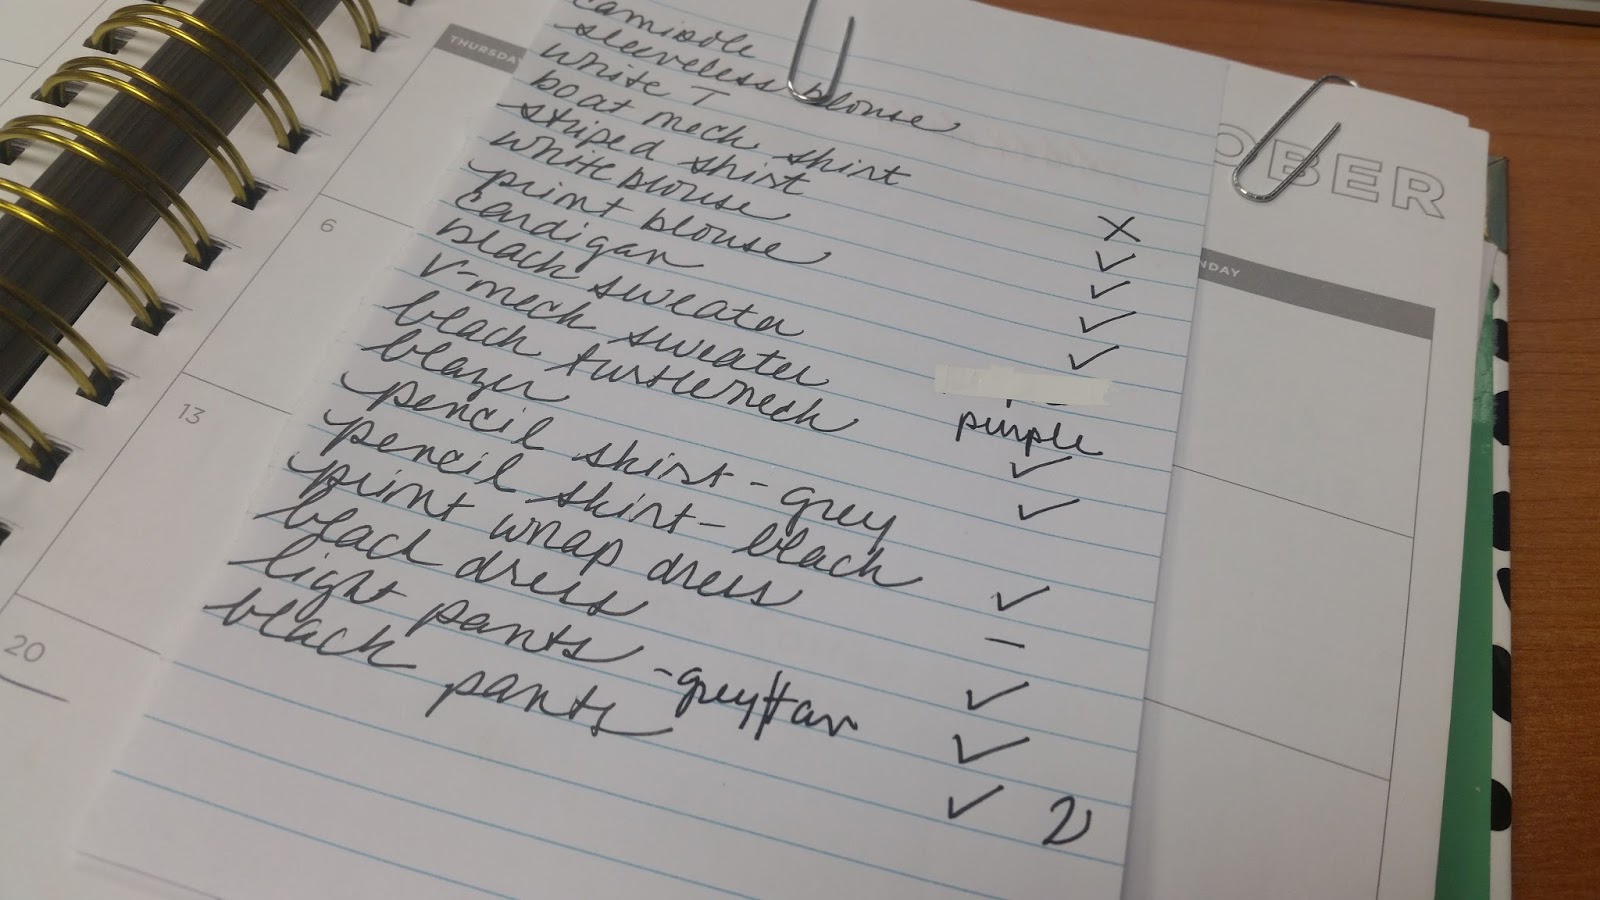 THURSDAY
6
13
20
camisole
sleeveless blouse
white T
boat neck shirt X
striped shirt ✓
white blouse ✓
print blouse ✓
cardigan ✓
black sweater
v-neck sweater purple
black turtleneck ✓
blazer ✓
pencil skirt - grey
pencil skirt - black ✓
print wrap dress –
black dress ✓
light pants - grey/tan ✓
black pants ✓ 2
OBER
NDAY